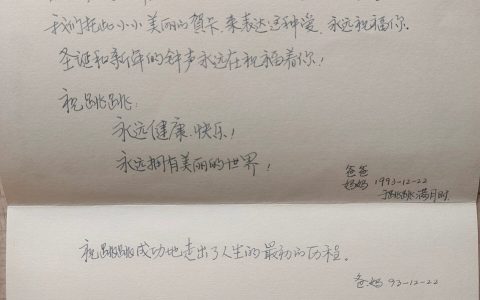 我们托此小小美丽的贺卡,来表达这种爱,永远祝福你.
圣诞和新年的钟声永远在祝福着你!
祝跳跳:
永远健康.快乐!
永远拥有美丽的世界!
爸爸
妈妈 1993-12-22
跳跳满月时.
祝跳跳成功地走出了人生的最初的历程。
爸.妈 93-12-22